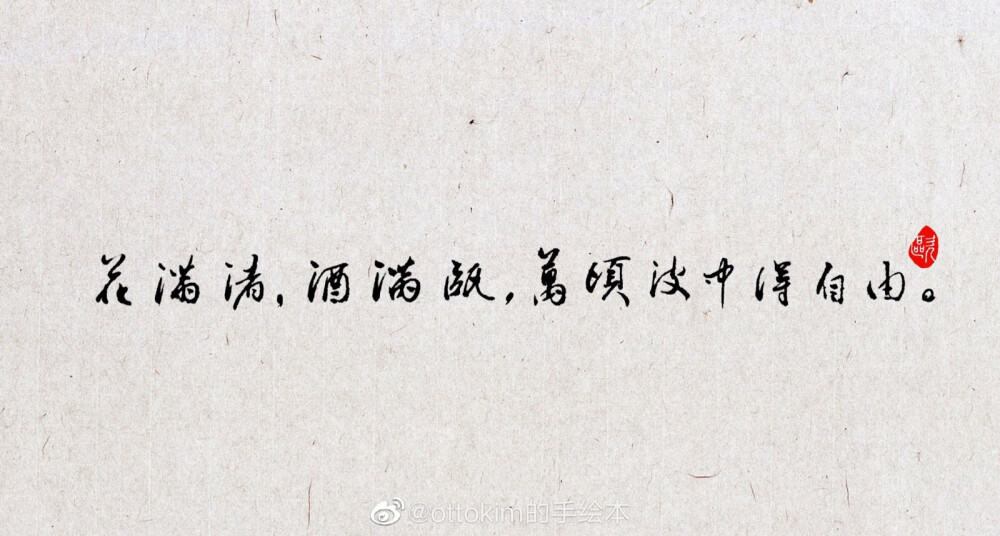 花满渚，酒满瓯，萬頃波中得自由。
欧
@ottokim的手绘本